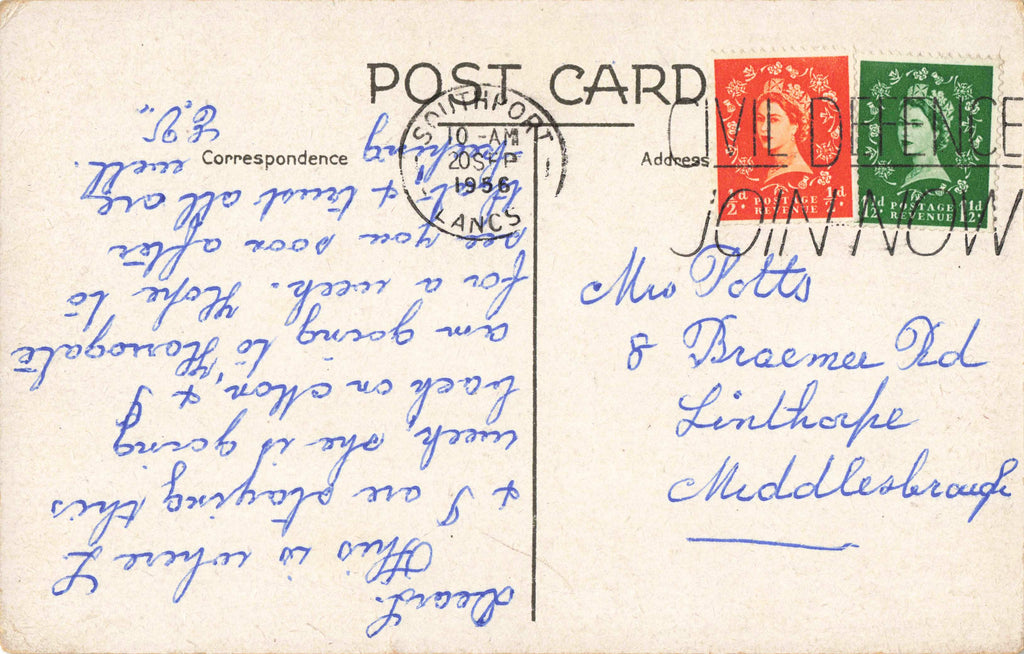 POST CARD
Correspondence
Address
SOUTHPORT
10 - AM
20 SEP
1956
LANCS
CIVIL DEFENCE
JOIN NOW
½d POSTAGE REVENUE ½d
1½d POSTAGE REVENUE 1½d
Dear
This is where L
& I are staying this
week, she is going
back on Mon, & I
am going to Harrogate
for a week. Hope to
see you soon after
that & trust all are
keeping well.
Mrs Potts
8 Braemer Rd
Linthorpe
Middlesbrough